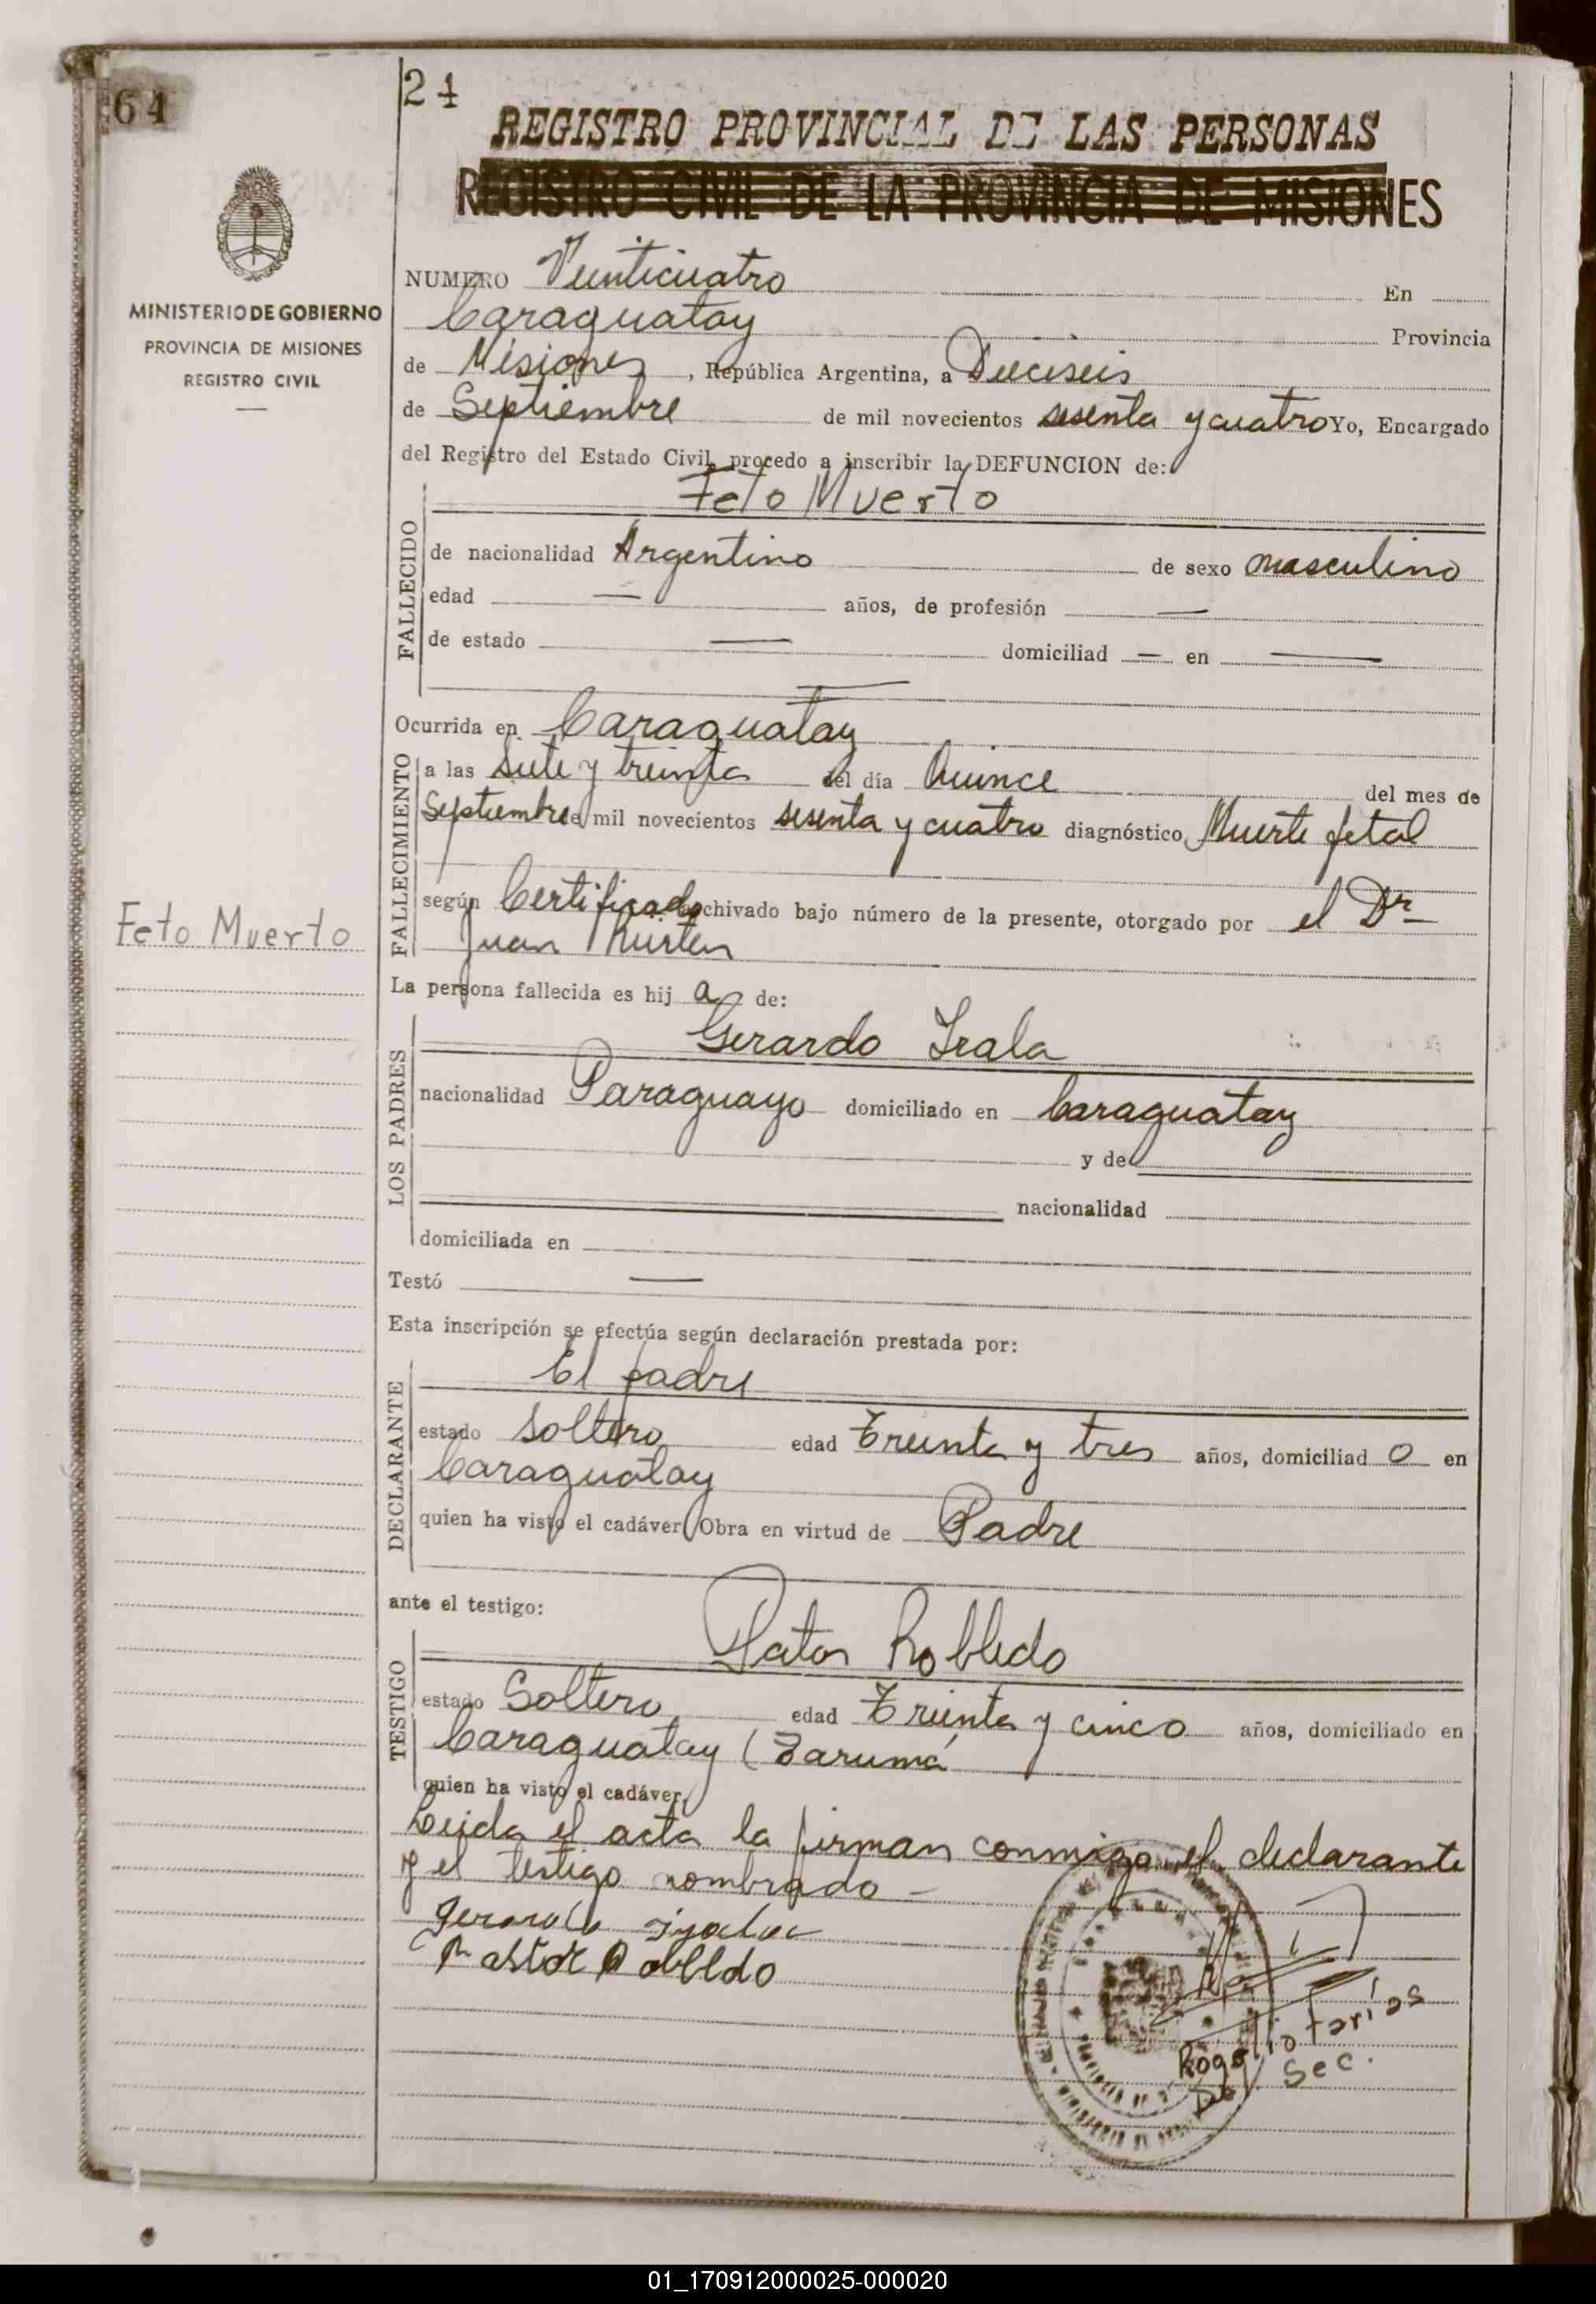 64
24
REGISTRO PROVINCIAL DE LAS PERSONAS
REGISTRO CIVIL DE LA PROVINCIA DE MISIONES
MINISTERIO DE GOBIERNO
PROVINCIA DE MISIONES
REGISTRO CIVIL
NUMERO Veinticuatro En
Caraguatay Provincia
de Misiones, República Argentina, a Dieciseis
de Septiembre de mil novecientos sesenta y cuatro Yo, Encargado
del Registro del Estado Civil, procedo a inscribir la DEFUNCION de:
Feto Muerto
FALLECIDO
de nacionalidad Argentino de sexo masculino
edad — años, de profesión —
de estado — domiciliad — en —
—
Ocurrida en Caraguatay
FALLECIMIENTO
a las siete y treinta del día Quince del mes de
Septiembre de mil novecientos sesenta y cuatro diagnóstico Muerte fetal
según Certificado archivado bajo número de la presente, otorgado por el Dr
Juan
Feto Muerto
La persona fallecida es hij a de:
LOS PADRES
Gerardo Irala
nacionalidad Paraguayo domiciliado en Caraguatay
y de
nacionalidad
domiciliada en
Testó —
Esta inscripción se efectúa según declaración prestada por:
DECLARANTE
El padre
estado soltero edad Treinta y tres años, domiciliad o en
Caraguatay
quien ha visto el cadáver. Obra en virtud de Padre
ante el testigo:
TESTIGO
Robledo
estado Soltero edad Treinta y cinco años, domiciliado en
Caraguatay (Tarumá
quien ha visto el cadáver.
Leida el acta la firman conmigo el declarante
y el testigo nombrado —
Pastor Robledo
Rogelio Farias
Sec.
01_170912000025-000020